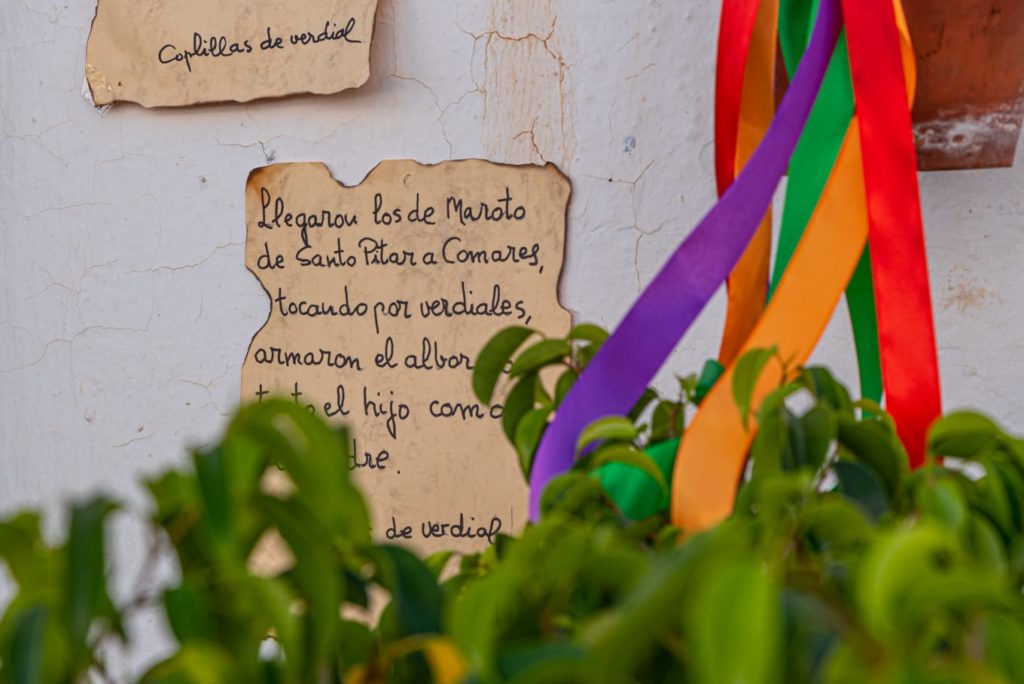 Coplillas de verdial
Llegaron los de Maroto
de Santo Pitar a Comares,
tocando por verdiales,
armaron el albor
el hijo como
de verdial